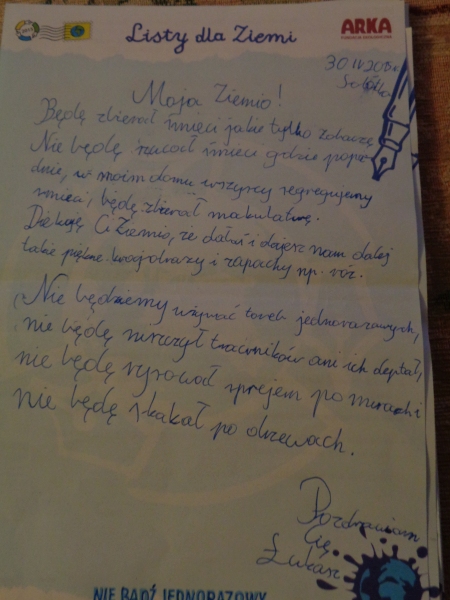 Listy dla Ziemi
ARKA
30 IV 2015r
Sokółka
Moja Ziemio!
Będę zbierał śmieci jakie tylko zobaczę
Nie będę rzucał śmieci gdzie popa-
dnie, w moim domu wszyscy segregujemy
śmieci, będę zbierał makulaturę.
Dziękuję Ci Ziemio, że dałaś i dajesz nam dalej
takie piękne krajobrazy i zapachy np. róż.
Nie będziemy używać toreb jednorazowych,
nie będę niszczył trawników ani ich deptał,
nie będę rysował sprejem po murach i
nie będę skakał po drzewach.
Pozdrawiam
Cię
Łukasz
NIE BĄDŹ JEDNORAZOWY